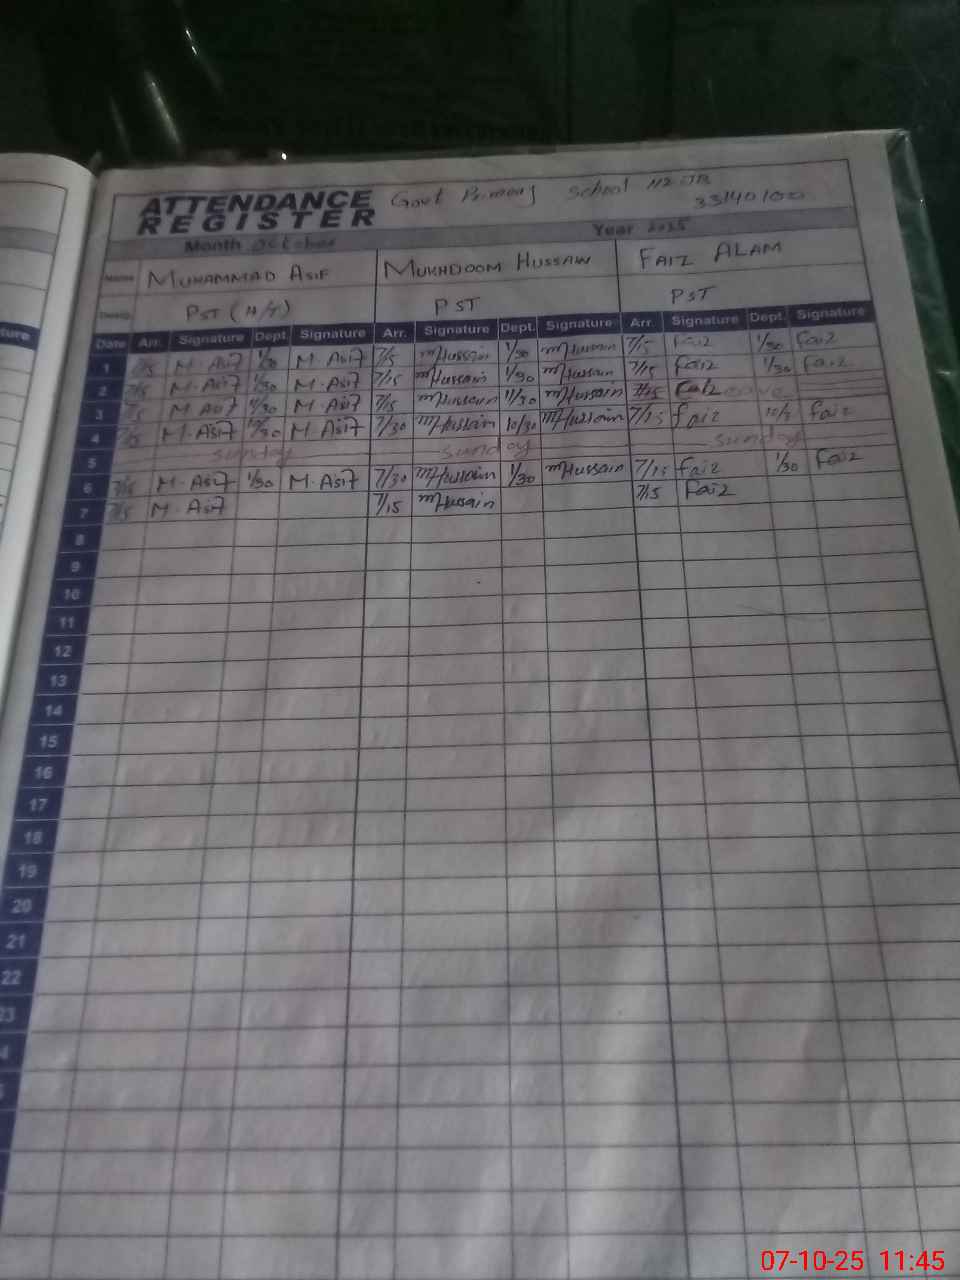 ATTENDANCE REGISTER Govt Primary School 112 JB
33140100
Month October Year 2025
Name MUHAMMAD ASIF MUKHDOOM HUSSAIN FAIZ ALAM
Desig. PST (H/T) PST PST
Date Arr. Signature Dept. Signature Arr. Signature Dept. Signature Arr. Signature Dept. Signature
1 7/15 M.Asif 1/30 M.Asif 7/15 mHussain 1/30 mHussain 7/15 Faiz 1/30 Faiz
2 7/15 M.Asif 1/30 M.Asif 7/15 mHussain 1/30 mHussain 7/15 Faiz 1/30 Faiz
3 7/15 M.Asif 11/30 M.Asif 7/15 mHussain 11/30 mHussain 7/15 Leave
4 7/15 M.Asif 10/30 M.Asif 7/30 mHussain 10/30 mHussain 7/15 faiz faiz
5 sunday sunday sunday
6 7/15 M.Asif 1/30 M.Asif 7/30 mHussain 1/30 mHussain 7/15 faiz 1/30 Faiz
7 7/15 M.Asif 7/15 mHussain 7/15 Faiz
8
9
10
11
12
13
14
15
16
17
18
19
20
21
22
23
07-10-25 11:45